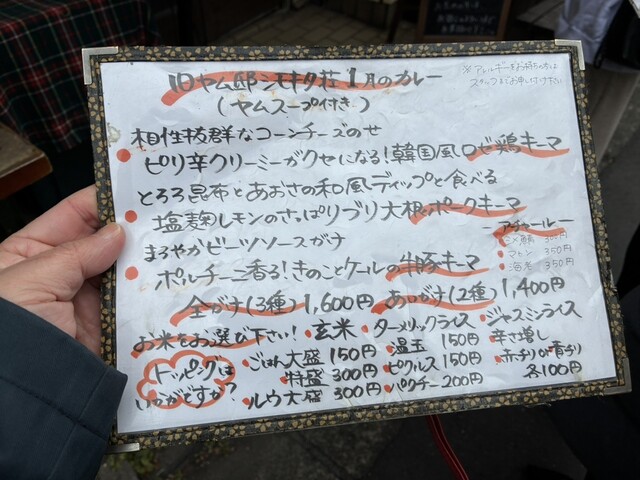 旧ヤム邸シモキタ荘 1月のカレー
(ヤムスープ付き)
※アレルギーをお持ちの方は
スタッフまでお申し付け下さい
相性抜群なコーンチーズのせ
・ピリ辛クリーミーがクセになる!韓国風ロゼ鶏キーマ
とろろ昆布とあおさの和風ディップと食べる
・塩麹レモンのさっぱりブリ大根とポークキーマ
まろやかビーツソースがけ
・ポルチーニ香る!きのことケールの牛豚キーマ
ーアチャールー
・〆鯖 350円
・マトン 350円
・海老 350円
全がけ(3種) 1,600円 あいがけ(2種) 1,400円
お米をお選び下さい! ・玄米 ・ターメリックライス ・ジャスミンライス
トッピングは
いかがですか?
・ごはん大盛 150円
・特盛 300円
・ルウ大盛 300円
・温玉 150円
・ピクルス 150円
・パクチー 200円
・辛さ増し
・赤チリor青チリ
各100円